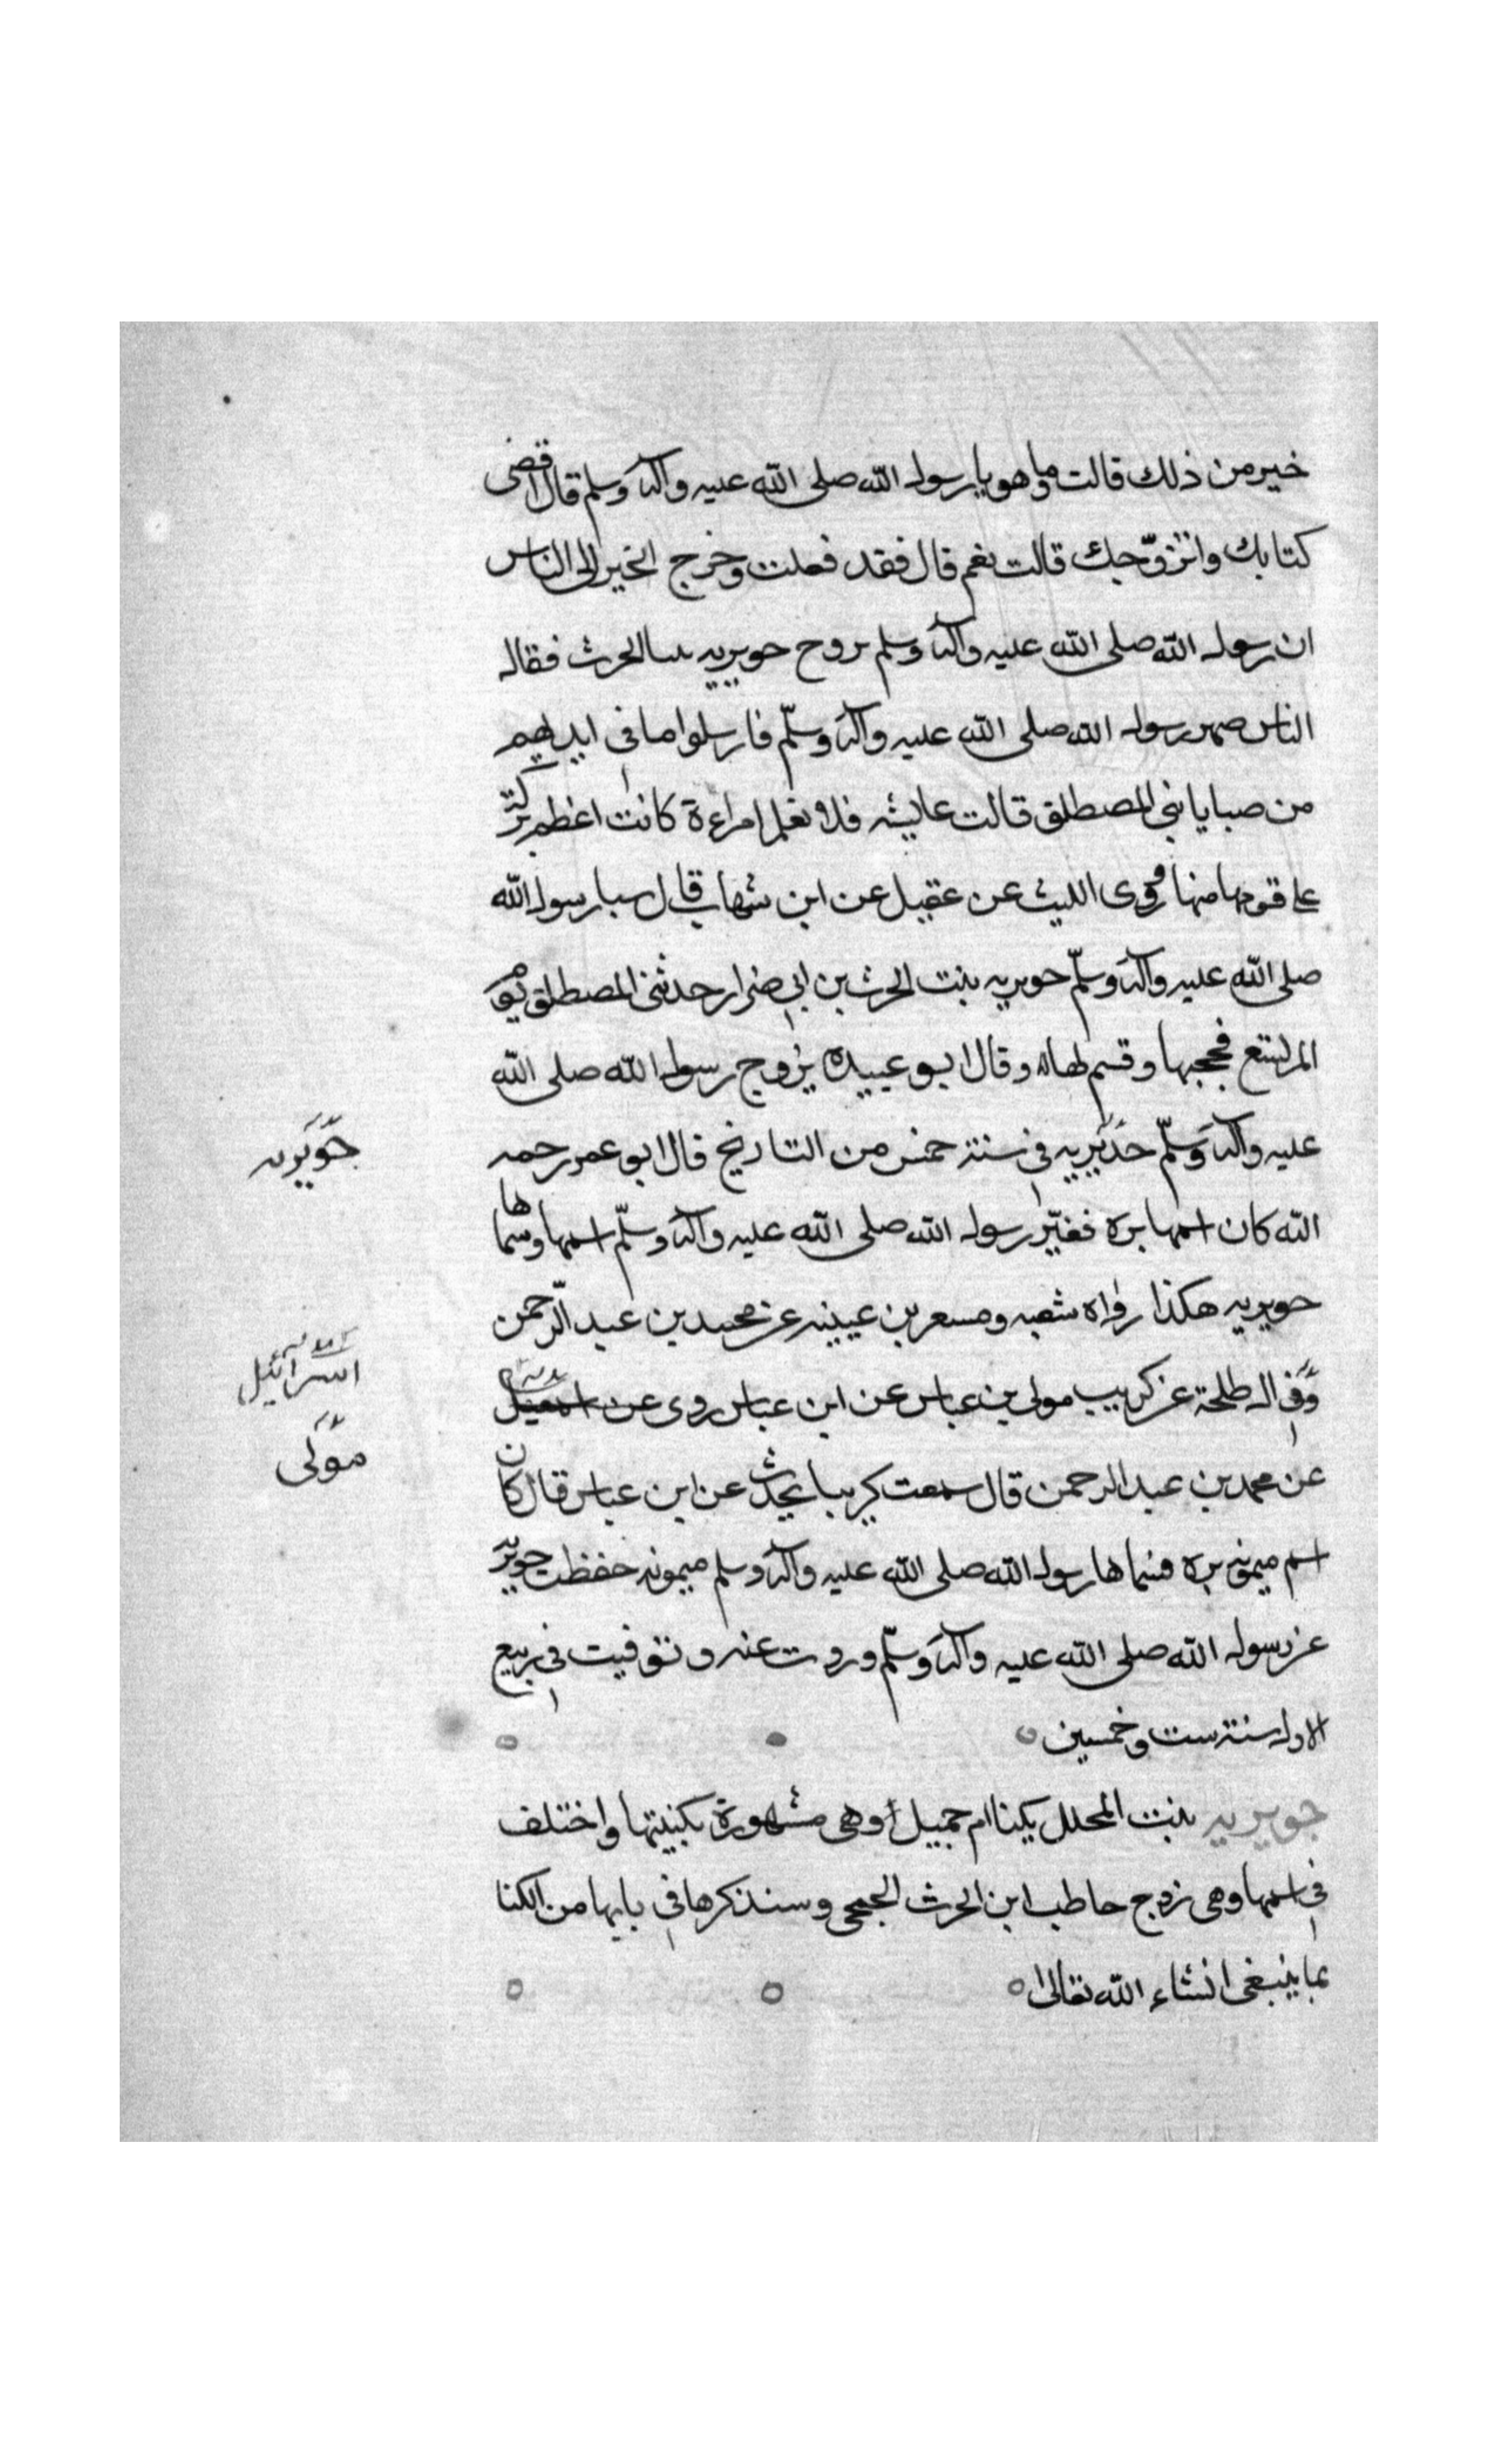 خير من ذلك قالت وما هو يا رسول الله صلى الله عليه وآله وسلم قال اقضى
كتابك واتزوّجك قالت نعم قال فقد فعلت وخرج الخبر الى الناس
ان رسول الله صلى الله عليه وآله وسلم تزوج جويريه بنت الحرث فقال
الناس صهر رسول الله صلى الله عليه وآله وسلّم فارسلوا ما في ايديهم
من صبايا بني المصطلق قالت عايشه فلا نعلم امراءة كانت اعظم بركة
على قومها منها وروى الليث عن عقيل عن ابن شهاب قال سبا رسول الله
صلى الله عليه وآله وسلّم جويريه بنت الحرث بن ابي ضرار احد بني المصطلق يوم
المريسع فحجبها وقسم لها وقال ابو عبيده تزوج رسول الله صلى الله
عليه وآله وسلّم جويريه في سنة خمس من التاريخ قال ابو عمر رحمه
الله كان اسمها بره فغيّر رسول الله صلى الله عليه وآله وسلّم اسمها وسماها
جويريه هكذا رواه شعبه ومسعر بن عيينه عن محمد بن عبد الرحمن
مولى ال طلحة عن كريب مولى بن عباس عن ابن عباس روى عن اسمعيل
عن محمد بن عبد الرحمن قال سمعت كريبا يحدث عن ابن عباس قال كان
اسم ميمونه بره فسماها رسول الله صلى الله عليه وآله وسلم ميمونه حفظت جويريه
عن رسول الله صلى الله عليه وآله وسلّم وروت عنه وتوفيت في ربيع
الاول سنة ست وخمسين
جويريه بنت المحلل يكنا ام جميل وهي مشهورة بكنيتها واختلف
في اسمها وهي زوج حاطب ابن الحرث الجمحي وسنذكرها في بابها من الكنا
بما ينبغي انشاء الله تعالى
جويريه
اسرائيل
مولى